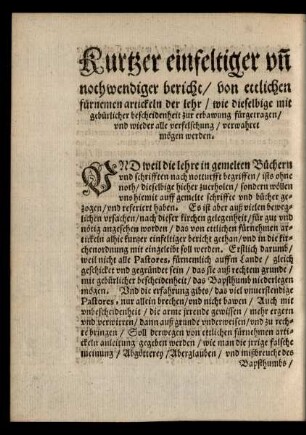 Kurtzer einfeltiger vñ
nothwendiger bericht / von ettlichen
fürnemen artickeln der lehr / wie dieselbige mit
gebürlicher bescheidenheit zur erbawung fürgetragen /
vnd wieder alle verfelschung / verwahret
mögen werden.
VND weil die lehre in gemelten Büchern
vnd schrifften nach notturfft begriffen / ists ohne
noth / dieselbige hieher zuerholen / sondern wöllen
vns hiemit auff gemelte schrifften vnd bücher ge-
zogen / vnd referiert haben. Es ist aber auß vielen beweg-
lichen vrsachen / nach dieser kirchen gelegenheit / für gut vnd
nötig angesehen worden / das von ettlichen fürnemen ar-
tickeln alhie kurtzer einfeltiger bericht gethan / vnd in die kir-
chenordnung mit eingeleibt soll werden. Erstlich darumb /
weil nicht alle Pastores, fürnemlich auffm Lande / gleich
geschickt vnd gegründet sein / das sie auß rechtem grunde /
mit gebürlicher bescheidenheit / das Bapsthumb niederlegen
mögen. Vnd die erfahrung gibts / das viel vnuerstendige
Pastores, nur allein brechen / vnd nicht bawen / Auch mit
vnbescheidenheit / die arme jrrende gewissen / mehr ergern
vnd verwirren / dann auß grunde vnderweisen / vnd zu rech-
te bringen / Soll derwegen von ettlichen fürnehmen arti-
ckeln anleitung gegeben werden / wie man die jrrige falsche
meinung / Abgötterey / Aberglauben / vnd mißbreuche des
Bapsthumbs /